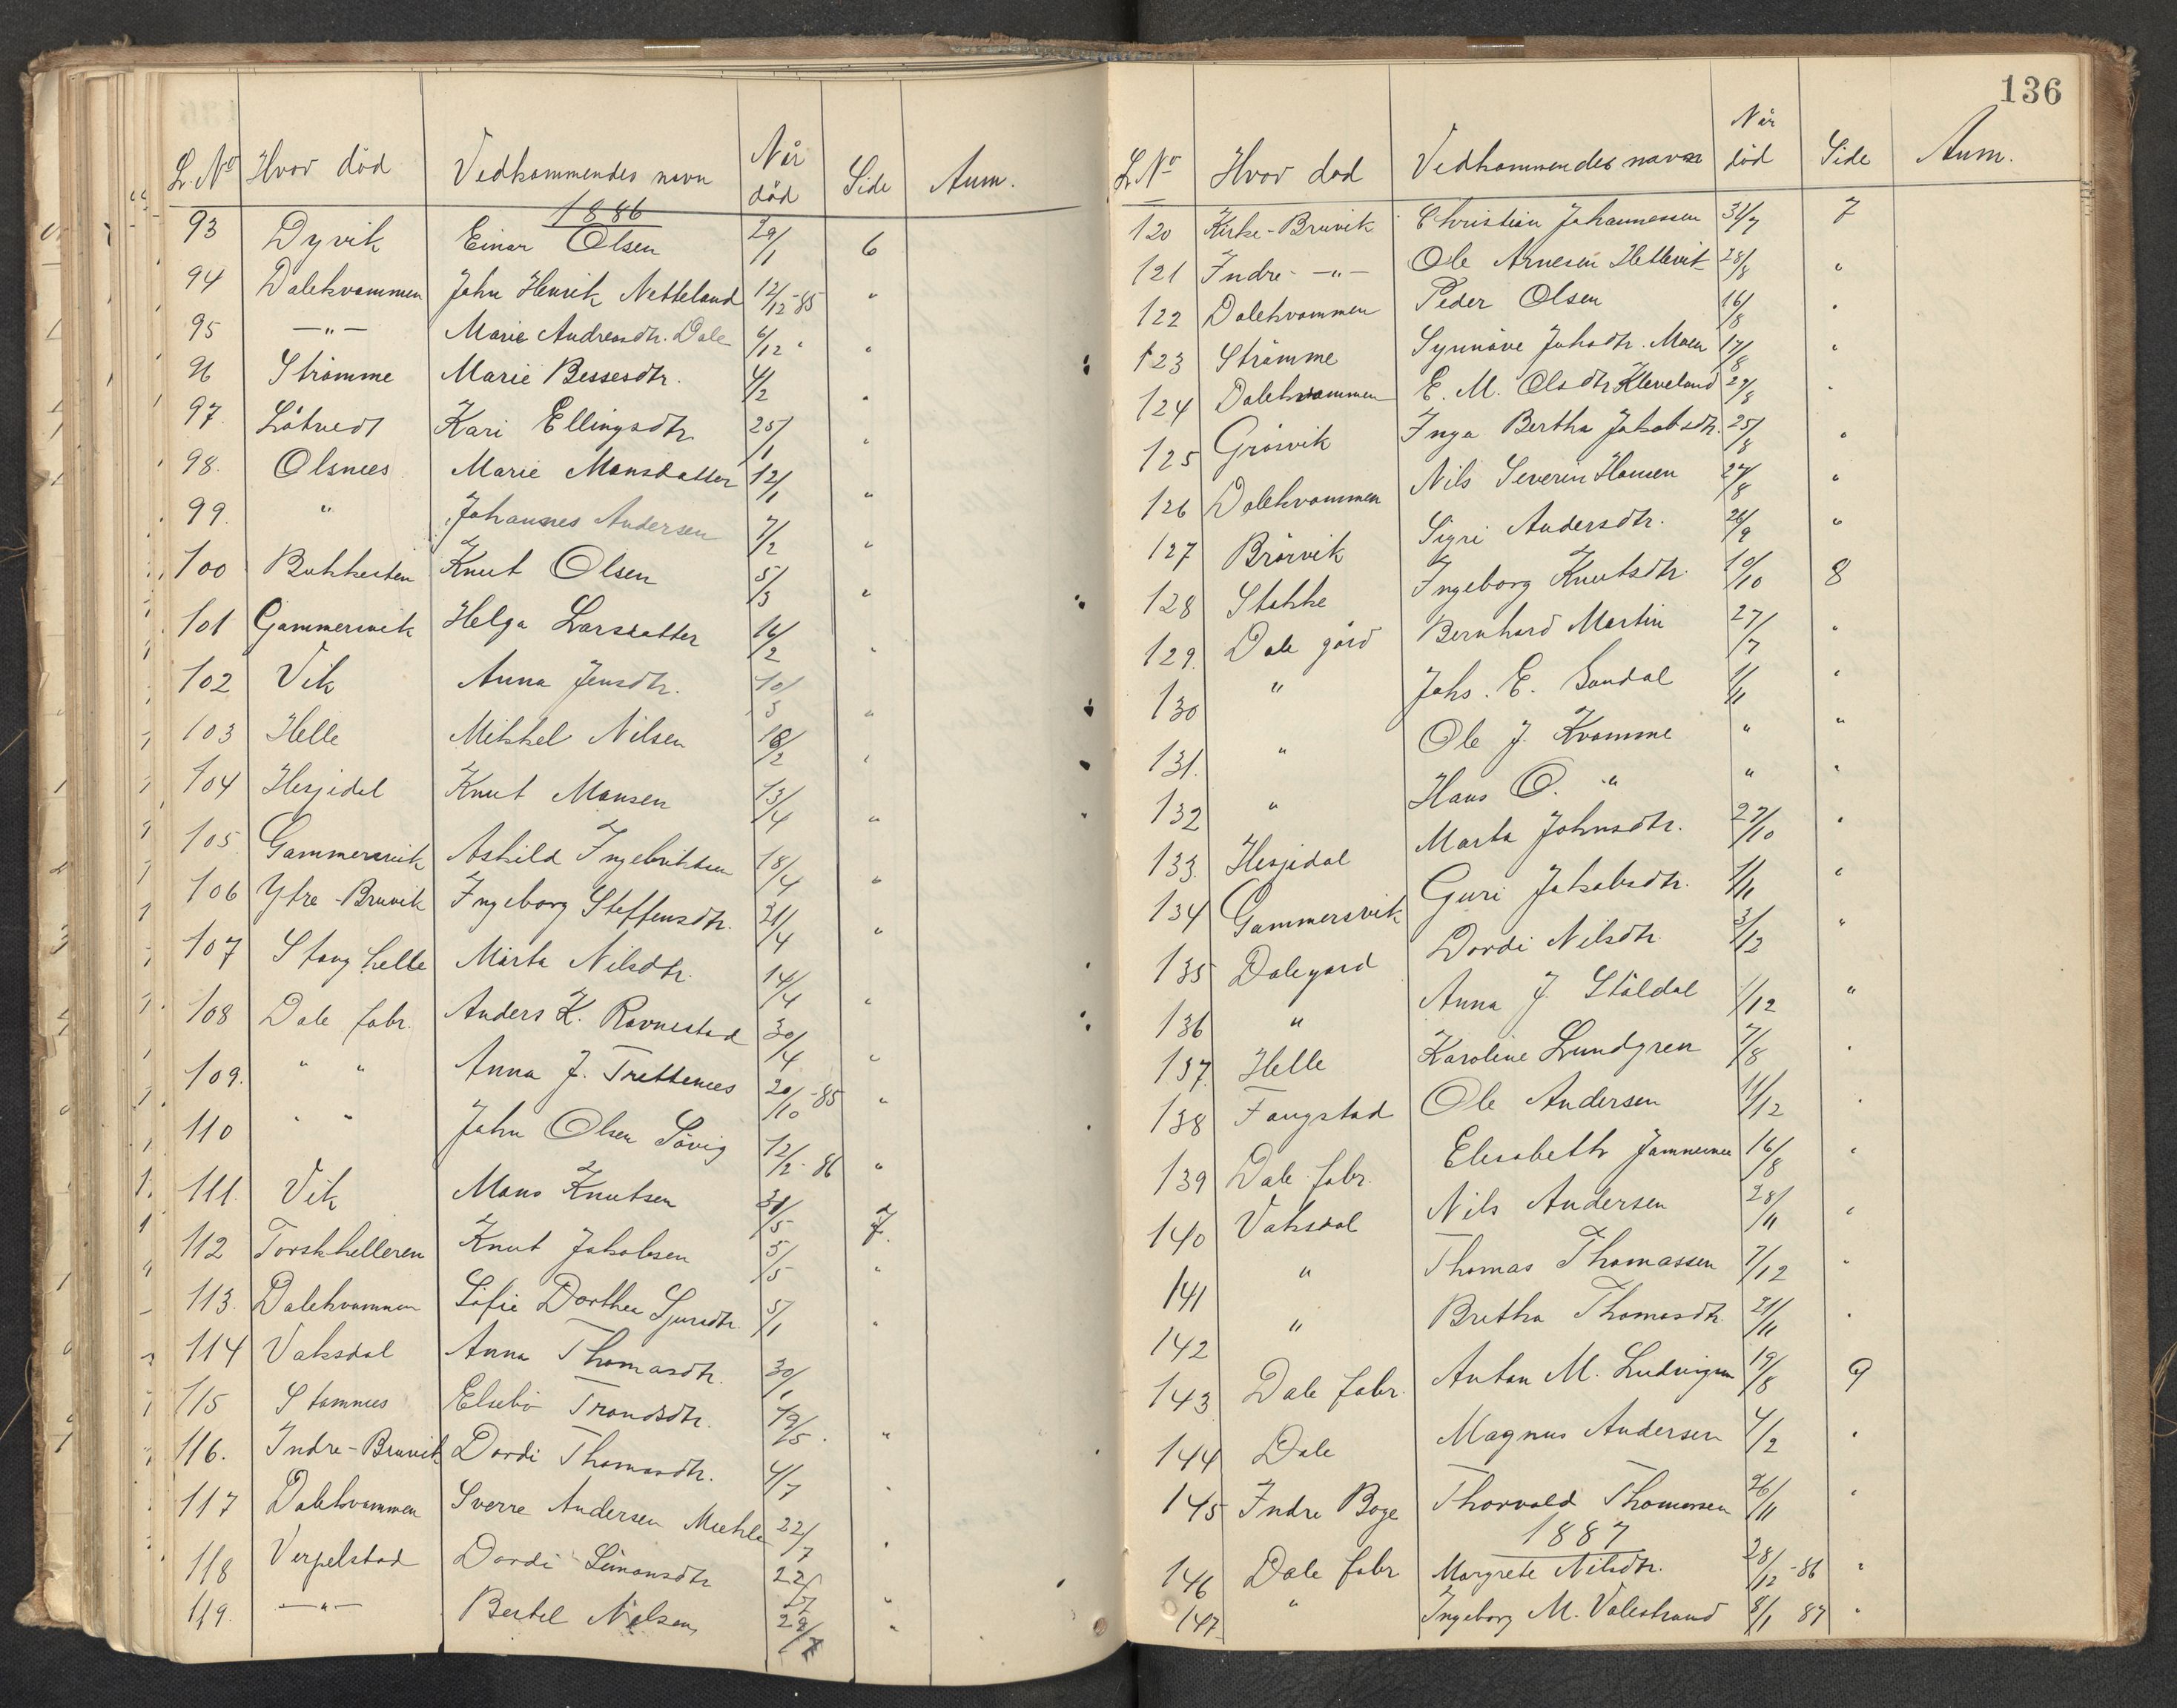 L. No Hvor död Vedkommendes navn Når död Side Anm.
1886
93 Dyvik Einar Olsen 29/1 6
94 Dalekvammen John Henrik Netteland 12/12-85 "
95 —"— Marie Andreasdtr. Dale 6/12 " "
96 Strømme Marie Bessesdtr. 4/2 "
97. Låtvedt Kari Ellingsdtr. 25/1 "
98. Olsnees Marie Monsdatter 12/1 "
99. " Johannes Andersen 7/2 "
100 Bukkesten Knut Olsen 5/3 "
101 Gammersvik Helga Larsdatter 16/2 "
102 Vik Anna Jensdtr. 10/3 "
103 Helle Mikkel Nilsen 18/2 "
104 Hesjedal Knut Monsen 13/4 "
105. Gammersvik Askild Ingebriktsen 18/4 "
106 Ytre-Bruvik Ingeborg Steffensdtr. 21/4 "
107 Stanghelle Marta Nilsdtr. 14/4 "
108 Dale fabr. Anders K. Ravnestad 30/4 "
109. " " Anna J. Trettenees 20/10-85 "
110 " " John Olsen Søvig 12/2-86 "
111. Vik Mons Knutsen 31/5 7.
112 Torskhelleren Knut Jakobsen 5/5 "
113. Dalekvammen Sofie Dorthea Sjursdtr. 5/1 "
114 Vaksdal Anna Thomasdtr. 30/1
115 Stamnes Elsebø Trondsdtr. 19/5. "
116. Indre-Bruvik Dordi Thomasdtr. 4/7 "
117 Dalekvammen Sverre Andersen 22/7 "
118 Verpelstad Dordi Simonsdtr 22/7 "
119. —"— Bertel Nilsen 29/7 "
136
L No Hvor död Vedkommendes navn Når död Side Anm.
120 Kirke-Bruvik Christian Johannessen 31/7 7
121 Indre- —"— Ole Arnesen Hellevik 28/8 "
122 Dalekvammen Peder Olsen 16/8 "
123 Strømme Synnøve Johsdtr. Moen 17/8 "
124 Dalekvammen E. M. Olsdtr Kleveland 29/8 "
125 Gråsvik Inga Bertha Jakobsdtr. 25/8 "
126 Dalekvammen Nils Severin Hansen 27/8 "
127 Brørvik Sigri Andersdtr. 26/9 "
128 Stokke Ingeborg Knutsdtr. 10/10 8
129. Dale gård Bernhard Martin 27/7 "
130 " Johs. E. Sandal 1/11 "
131. " Ole J. Kvamme " "
132 " Hans O. " " "
133. Hesjedal Marta Johnsdtr. 27/10 "
134 Gammersvik Guri Jakobsdtr. 1/11 "
135 Dalegard Dordi Nilsdtr. 3/12 "
136 " Anna J. Ståldal 1/12 "
137. Helle Karoline Lundgren 7/8 "
138 Fangstad Ole Andersen 11/12 "
139 Dale fabr. Elisabeth 16/8 "
140 Vaksdal Nils Andersen 28/11 "
141 " Thomas Thomassen 7/12 "
142 " Bretha Thomasdtr 21/11 "
143 Dale fabr. Anton M. Ludvigsen 19/8 9
144 Dale Magnus Andersen 4/2 "
145 Indre Boge Thorvald Thomassen 26/11 "
1887
146 Dale fabr Margrete Nilsdtr. 28/12-86 "
147 " Ingeborg M. Valestrand 8/1 87 "